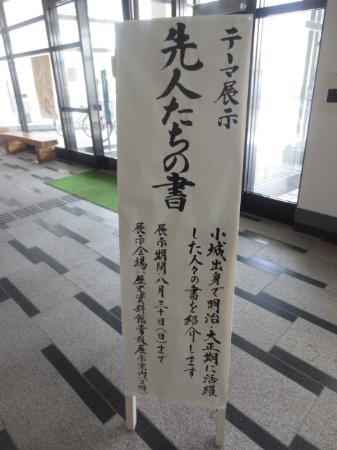 テーマ展示
先人たちの書
小城出身で明治、大正期に活躍
した人々の書を紹介します
展示期間:八月三十日(日)まで
展示会場:歴史資料館常設展示室内(2階)